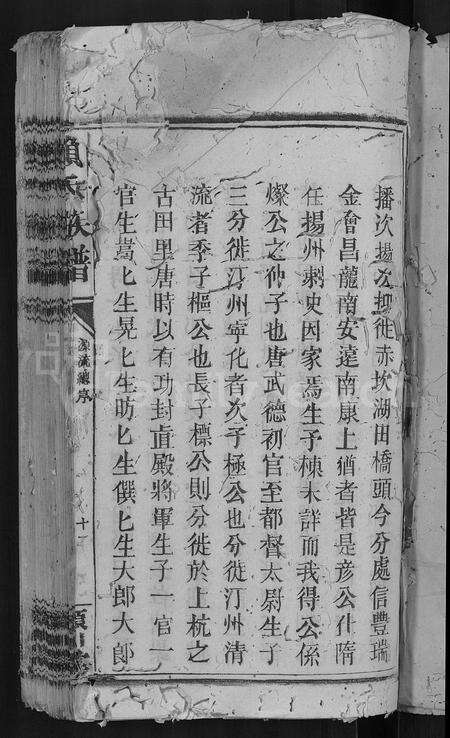 播次揚次抑徙赤坎湖田橋頭今分處信豐瑞
金會昌龍南安遠南康上猶者皆是彦公仕隋
任揚州刺史因家焉生子棟未詳而我得公係
燦公之仲子也唐武德初官至都督太尉生子
三分徙汀州寧化者次子極公也分徙汀州清
流者季子樞公也長子標公則分徙於上杭之
古田里唐時以有功封直殿將軍生子一官一
官生暠匕生晃匕生昉匕生僎匕生大郎大郎
賴氏族譜
源流總序